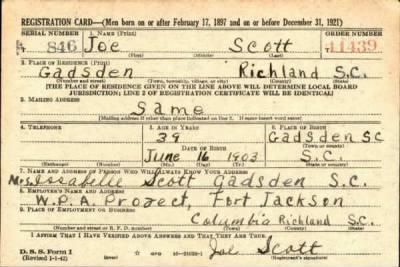 REGISTRATION CARD—(Men born on or after February 17, 1897 and on or before December 31, 1921)
SERIAL NUMBER 1. NAME (Print) ORDER NUMBER
846 Joe Scott 11439
(First) (Middle) (Last)
2. PLACE OF RESIDENCE (Print)
Gadsden Richland S.C.
(Number and street) (Town, township, village, or city) (County) (State)
[THE PLACE OF RESIDENCE GIVEN ON THE LINE ABOVE WILL DETERMINE LOCAL BOARD
JURISDICTION; LINE 2 OF REGISTRATION CERTIFICATE WILL BE IDENTICAL]
3. MAILING ADDRESS
Same
[Mailing address if other than place indicated on line 2. If same insert word same]
4. TELEPHONE 5. AGE IN YEARS 6. PLACE OF BIRTH
39 Gadsden SC
DATE OF BIRTH
June 16 1903 S.C.
7. NAME AND ADDRESS OF PERSON WHO WILL ALWAYS KNOW YOUR ADDRESS
Scott Gadsden S.C.
8. EMPLOYER'S NAME AND ADDRESS
W.P.A. Project, Fort Jackson
9. PLACE OF EMPLOYMENT OR BUSINESS
Columbia Richland S.C.
(Number and street or R. F. D. number) (Town) (County) (State)
I AFFIRM THAT I HAVE VERIFIED ABOVE ANSWERS AND THAT THEY ARE TRUE.
Joe Scott
D. S. S. Form 1
(Revised 1-1-42) GPO 16—21630-1 (Registrant's signature)